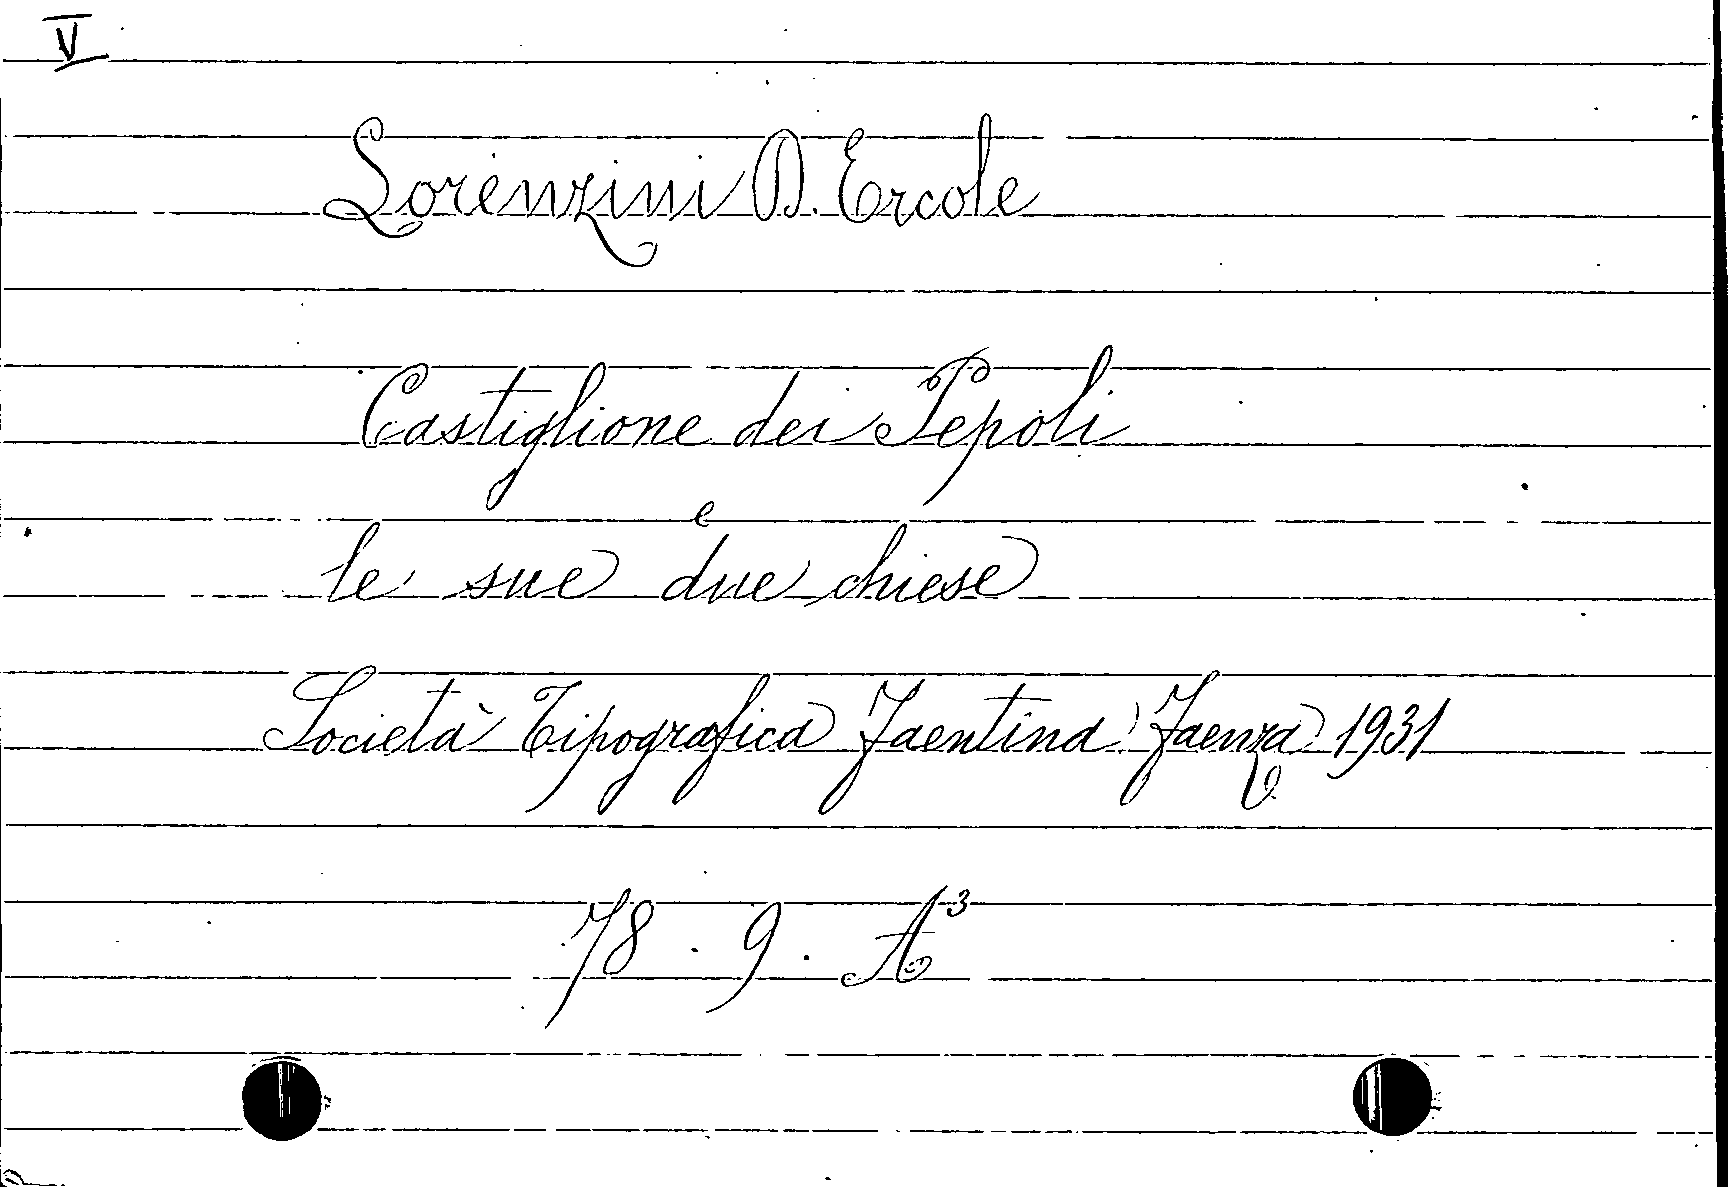 V
Lorenzini D. Ercole
Castiglione dei Pepoli
e
le sue due chiese
Società Tipografica Faentina Faenza 1931
78 . 9 . A³